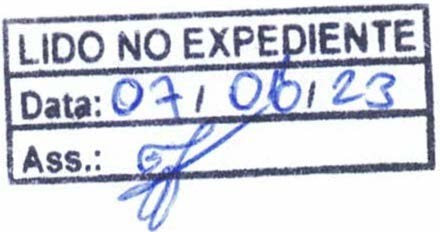 LIDO NO EXPEDIENTE
Data: 07 / 06 / 23
Ass.: